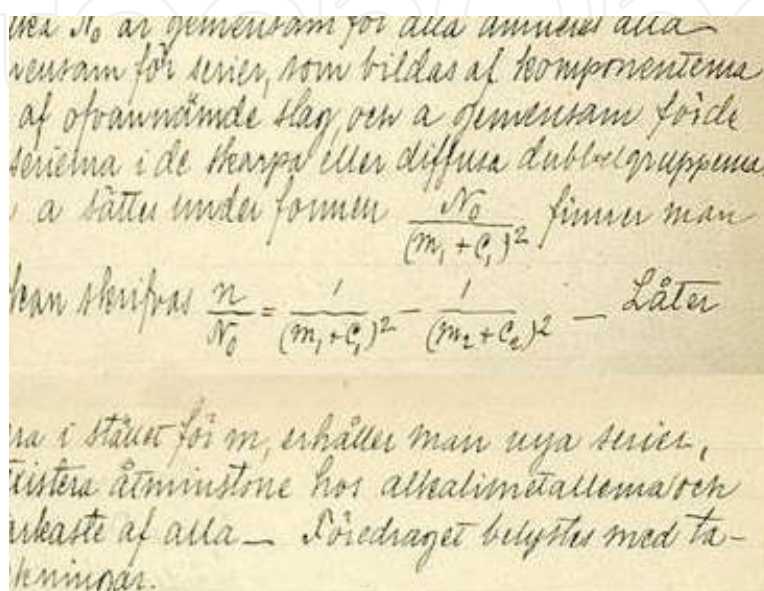 ska N₀ är gemensam för alla ämnens alla
mensam för serier, som bildas af komponenterna
af ofvannämde slag och a gemensam för de
serierna i de skarpa eller diffusa dubbelgrupperna
a sättes under formen N₀/(m₁ + C₁)² finner man
kan skrifvas n/N₀ = 1/(m₁+C₁)² – 1/(m₂+C₂)² – Låter
ra i stället för m, erhåller man nya serier,
åtminstone hos alkalimetallerna och
arkaste af alla – Föredraget belystes med ta-
kningar.